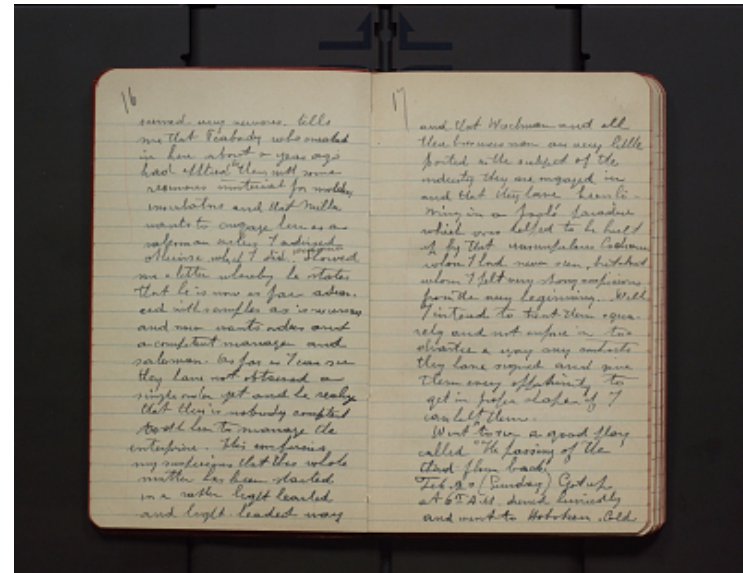 16
me that Peabody who sneaked
in here about a year ago
had offered to them with some
resinous material for molding
and that Miller
wants to engage him as a
salesman unless I advised
otherwise which I did. Showed
me a letter whereby he states
that he is now as far advan-
ced with samples as is necessary
and now wants orders and
a competent manager and
salesman. As far as I can see
they have not obtained a
single order yet and he really
that there is nobody
to manage the
enterprise. This confirms
my suspicions that this whole
matter has been started
in a rather light hearted
and light headed way
17
and that Wachman and all
these business men are very little
posted on the subject of the
industry they are engaged in
and that they have been li-
ving in a fool's paradise
which was helped to be built
up by that unscrupulous
whom I had never seen, but about
whom I felt very strong suspicions
from the very beginning. Well
I intend to treat them squa-
rely and not enforce in too
a way any contracts
they have signed and give
them every opportunity to
get in proper shape if I
can help them.
Went to see a good play
called "The passing of the
third floor back."
Feb. 20 (Sunday) Got up
at 6 A.M. dressed hurriedly
and went to Hoboken. Cold